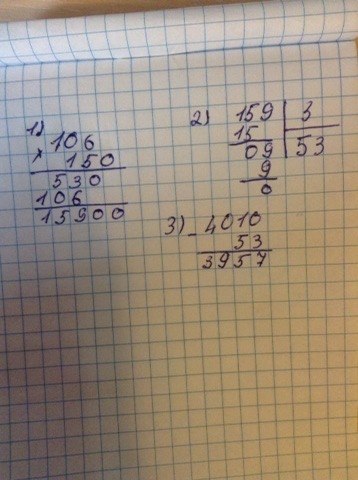 1)
106
× 150
530
106
15900
2) 159 | 3
15 | 53
09
9
0
3) - 4010
53
3957